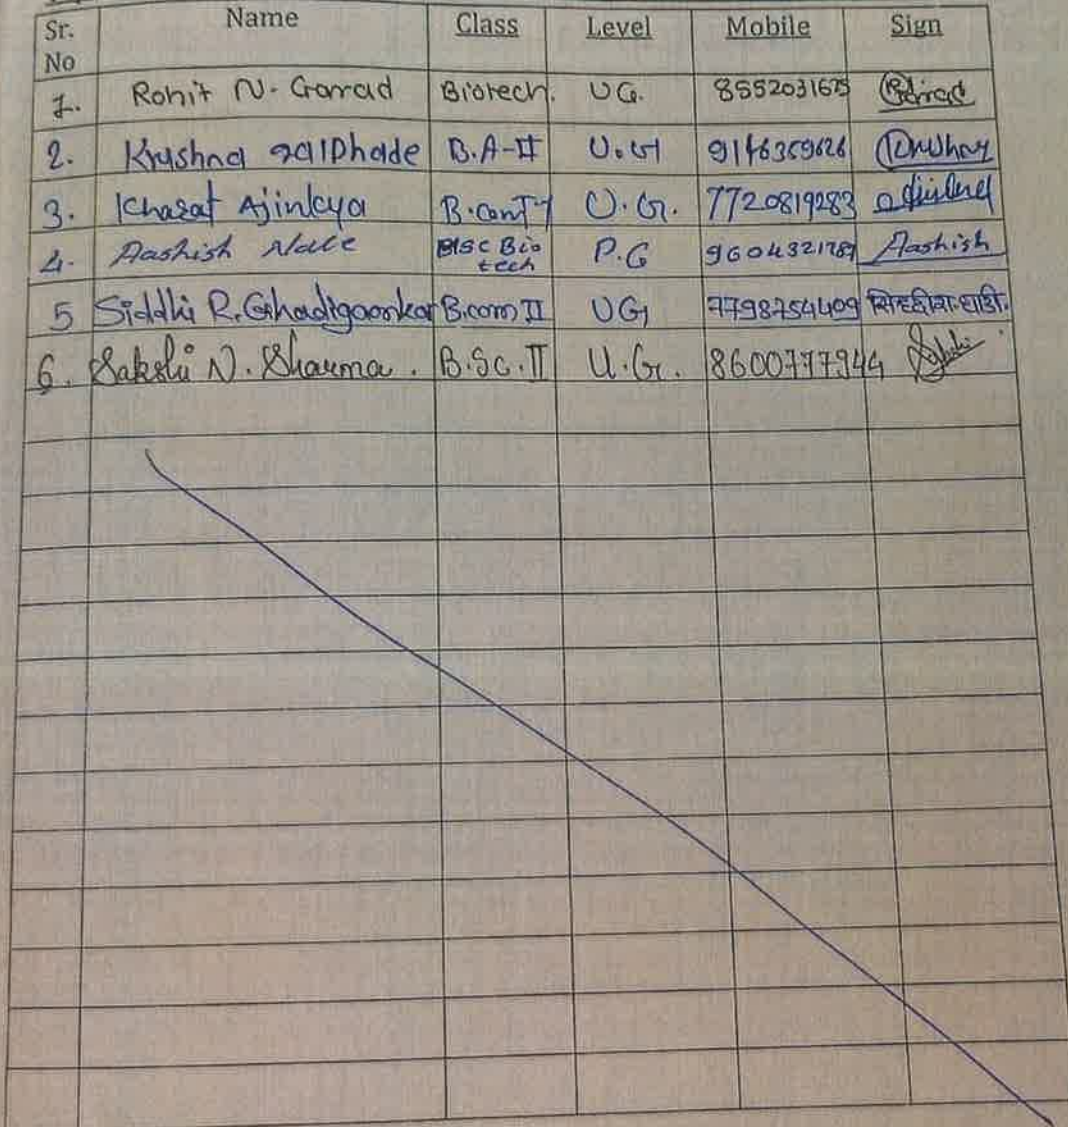 Sr. No Name Class Level Mobile Sign
1. Rohit N. Garrad Biotech. UG. 8552031625
2. Krushna galphade B.A-II U.G 9146359626 Krushna
3. Kharat Ajinkya B.com U.G. 7720819283
4. Aashish Nale P.G 9604321789 Aashish
5 Siddhi R. Ghadigaonkar B.com II UG 7798754409
6. Sakshi N. Sharma. B.Sc.II U.G. 8600777944